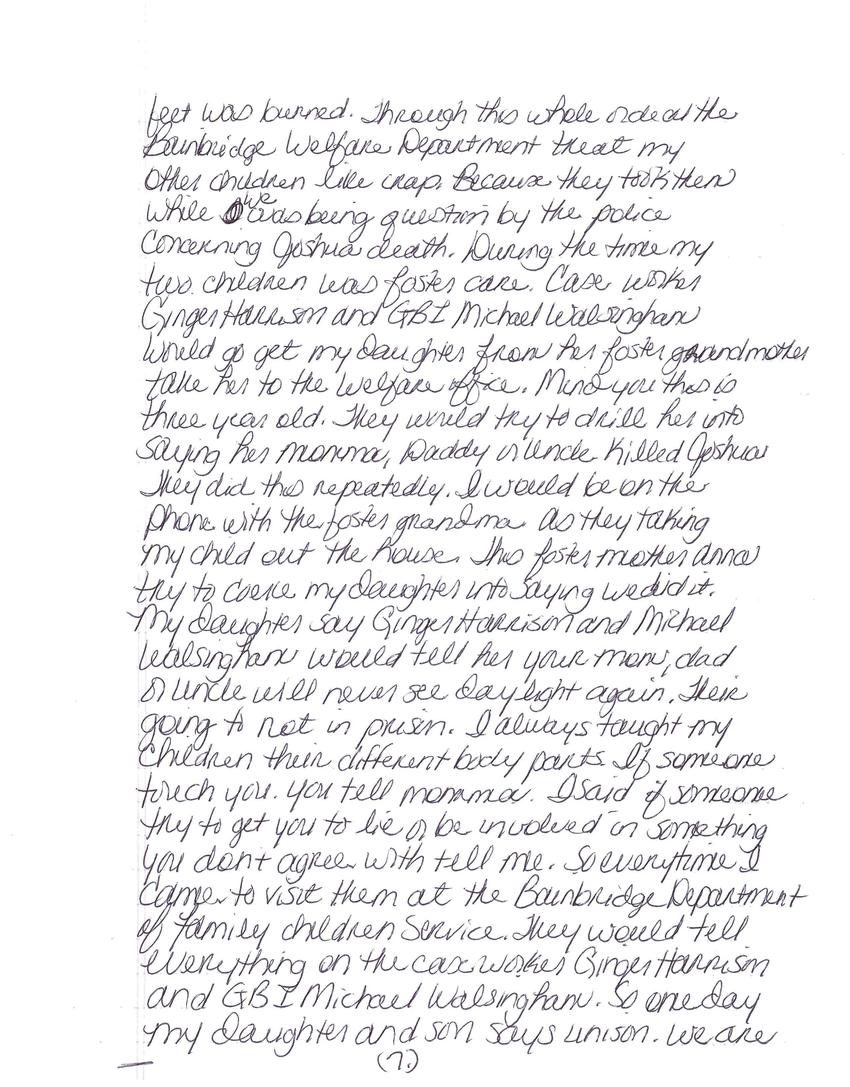 feet was burned. Through this whole ordeal the
Bainbridge Welfare Department treat my
other children like crap. Because they took them
while we was being question by the police
concerning Joshua death. During the time my
two children was foster care. Case worker
Ginger Harrison and GBI Michael Walsingham
would go get my daughter from her foster grandmother
take her to the welfare office. Mind you this is
three year old. They would try to drill her into
saying her momma, Daddy or Uncle killed Joshua
They did this repeatedly. I would be on the
phone with the foster grandma as they taking
my child out the house. This foster mother Anna
try to coerce my daughter into saying we did it.
My daughter say Ginger Harrison and Michael
Walsingham would tell her your mom, dad
or uncle will never see daylight again. Their
going to rot in prison. I always taught my
children their different body parts. If someone
touch you. you tell momma. I said if someone
try to get you to lie or be involved in something
you don't agree with tell me. So everytime I
came to visit them at the Bainbridge Department
of family children Service. They would tell
everything on the case worker Ginger Harrison
and GBI Michael Walsingham. So one day
my daughter and son says unison. we are
(7.)